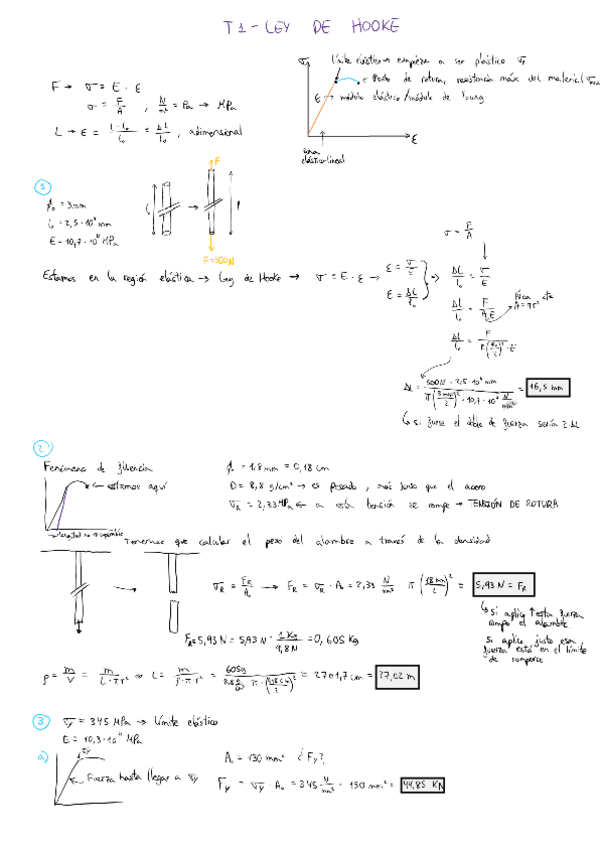 T1 - LEY DE HOOKE
F → σ = E · ε
σ = F/A , N/m² = Pa → MPa
L → ε = (L - l₀)/l₀ = ΔL/l₀ , adimensional
σ
Límite elástico → empieza a ser plástico σy
Punto de rotura, resistencia máx del material
E → módulo elástico / módulo de Young
ε
zona
elástico-lineal
①
ø₀ = 3mm
l₀ = 2,5 · 10⁴ mm
E = 10,7 · 10⁴ MPa
F
F = 500N
Estamos en la región elástica → Ley de Hooke → σ = E · ε → ε = σ/E
ε = ΔL/l₀
σ = F/A
ΔL/l₀ = σ/E
ΔL/l₀ = F/(A·E)
A = πr²
ΔL/l₀ = F/(π(ø₀/2)² · E)
Δl = (500N · 2,5·10⁴ mm)/(π(3mm/2)² · 10,7·10⁴ N/mm²) = 16,5 mm
↳ si fuese el doble de fuerza sería 2 ΔL
②
Fenómeno de fluencia
← estamos aquí
ø = 1,8mm = 0,18 cm
D = 8,8 g/cm³ → es pesado, más denso que el acero
σR = 2,33 MPa ← a esta tensión se rompe → TENSIÓN DE ROTURA
Tenemos que calcular el peso del alambre a través de la densidad
σR = FR/A₀ → FR = σR · A₀ = 2,33 N/mm² π (1,8 mm/2)² = 5,93 N = FR
↳ si aplico ↑ esta fuerza
rompo el alambre
si aplico justo esa
fuerza está en el límite
de romperse
FR = 5,93 N = 5,93 N · 1 Kg/9,8 N = 0,605 Kg
ρ = m/V = m/(L·πr²) → L = m/(ρ·πr²) = 605g/(8,8 g/cm³ · π · (0,18 cm/2)²) = 2701,7 cm = 27,02 m
③ σy = 345 MPa → límite elástico
E = 10,3 · 10⁴ MPa
a)
σy
Fuerza hasta llegar a σy
A₀ = 130 mm² ¿Fy?
Fy = σy · A₀ = 345 N/mm² · 130 mm² = 44,85 KN